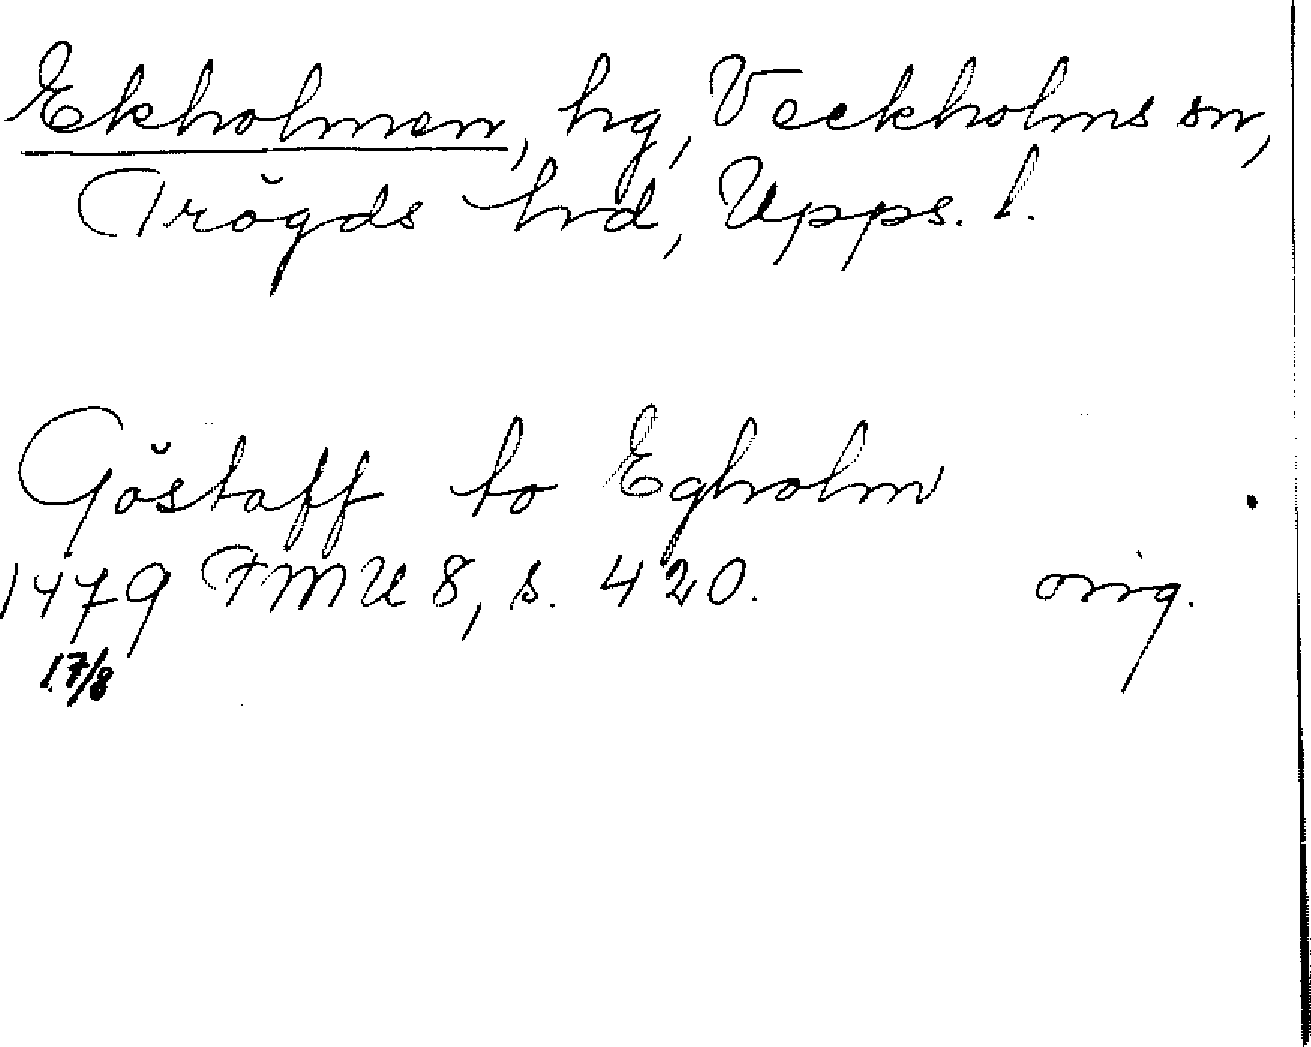 Ekholmen, hg, Veckholms sn,
Trögds hrd, Upps. l.
Göstaff to Egholm
1479 FMU 8, s. 420. orig.
17/8